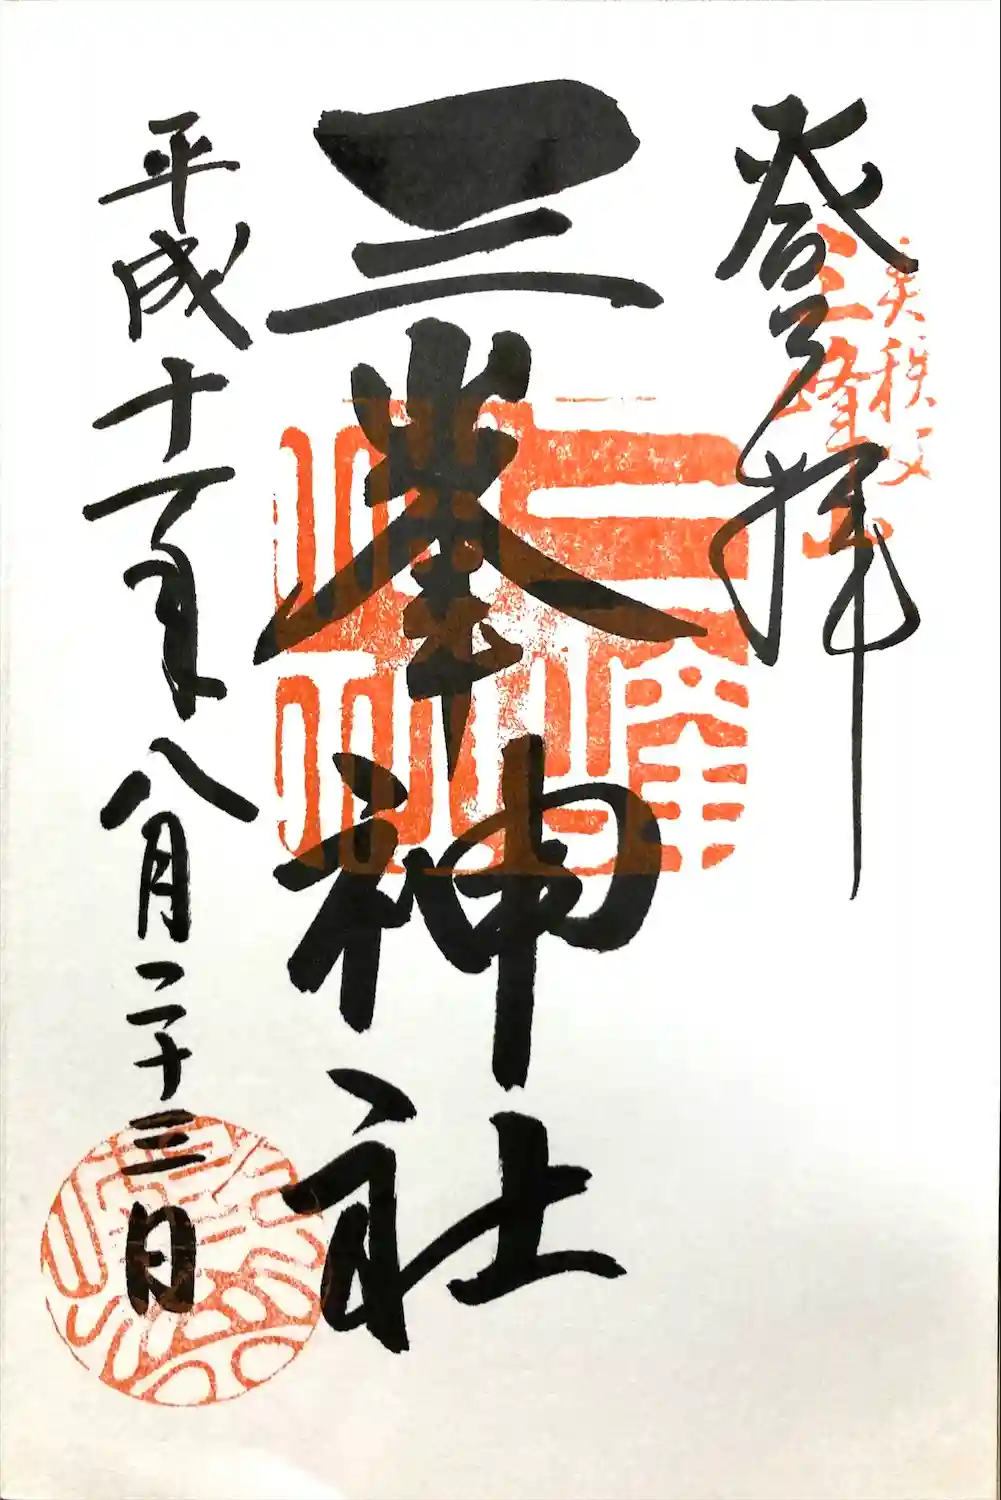 奥秩父
三峰山
登拝
三峯神社
平成十一年八月二十三日